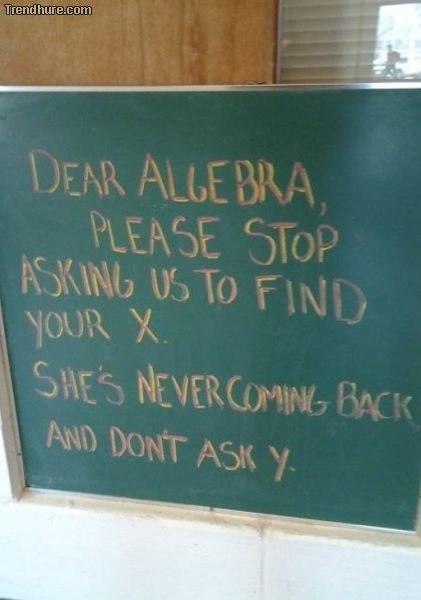 Trendhure.com
DEAR ALGEBRA,
PLEASE STOP
ASKING US TO FIND
YOUR X.
SHE'S NEVER COMING BACK
AND DON'T ASK Y.